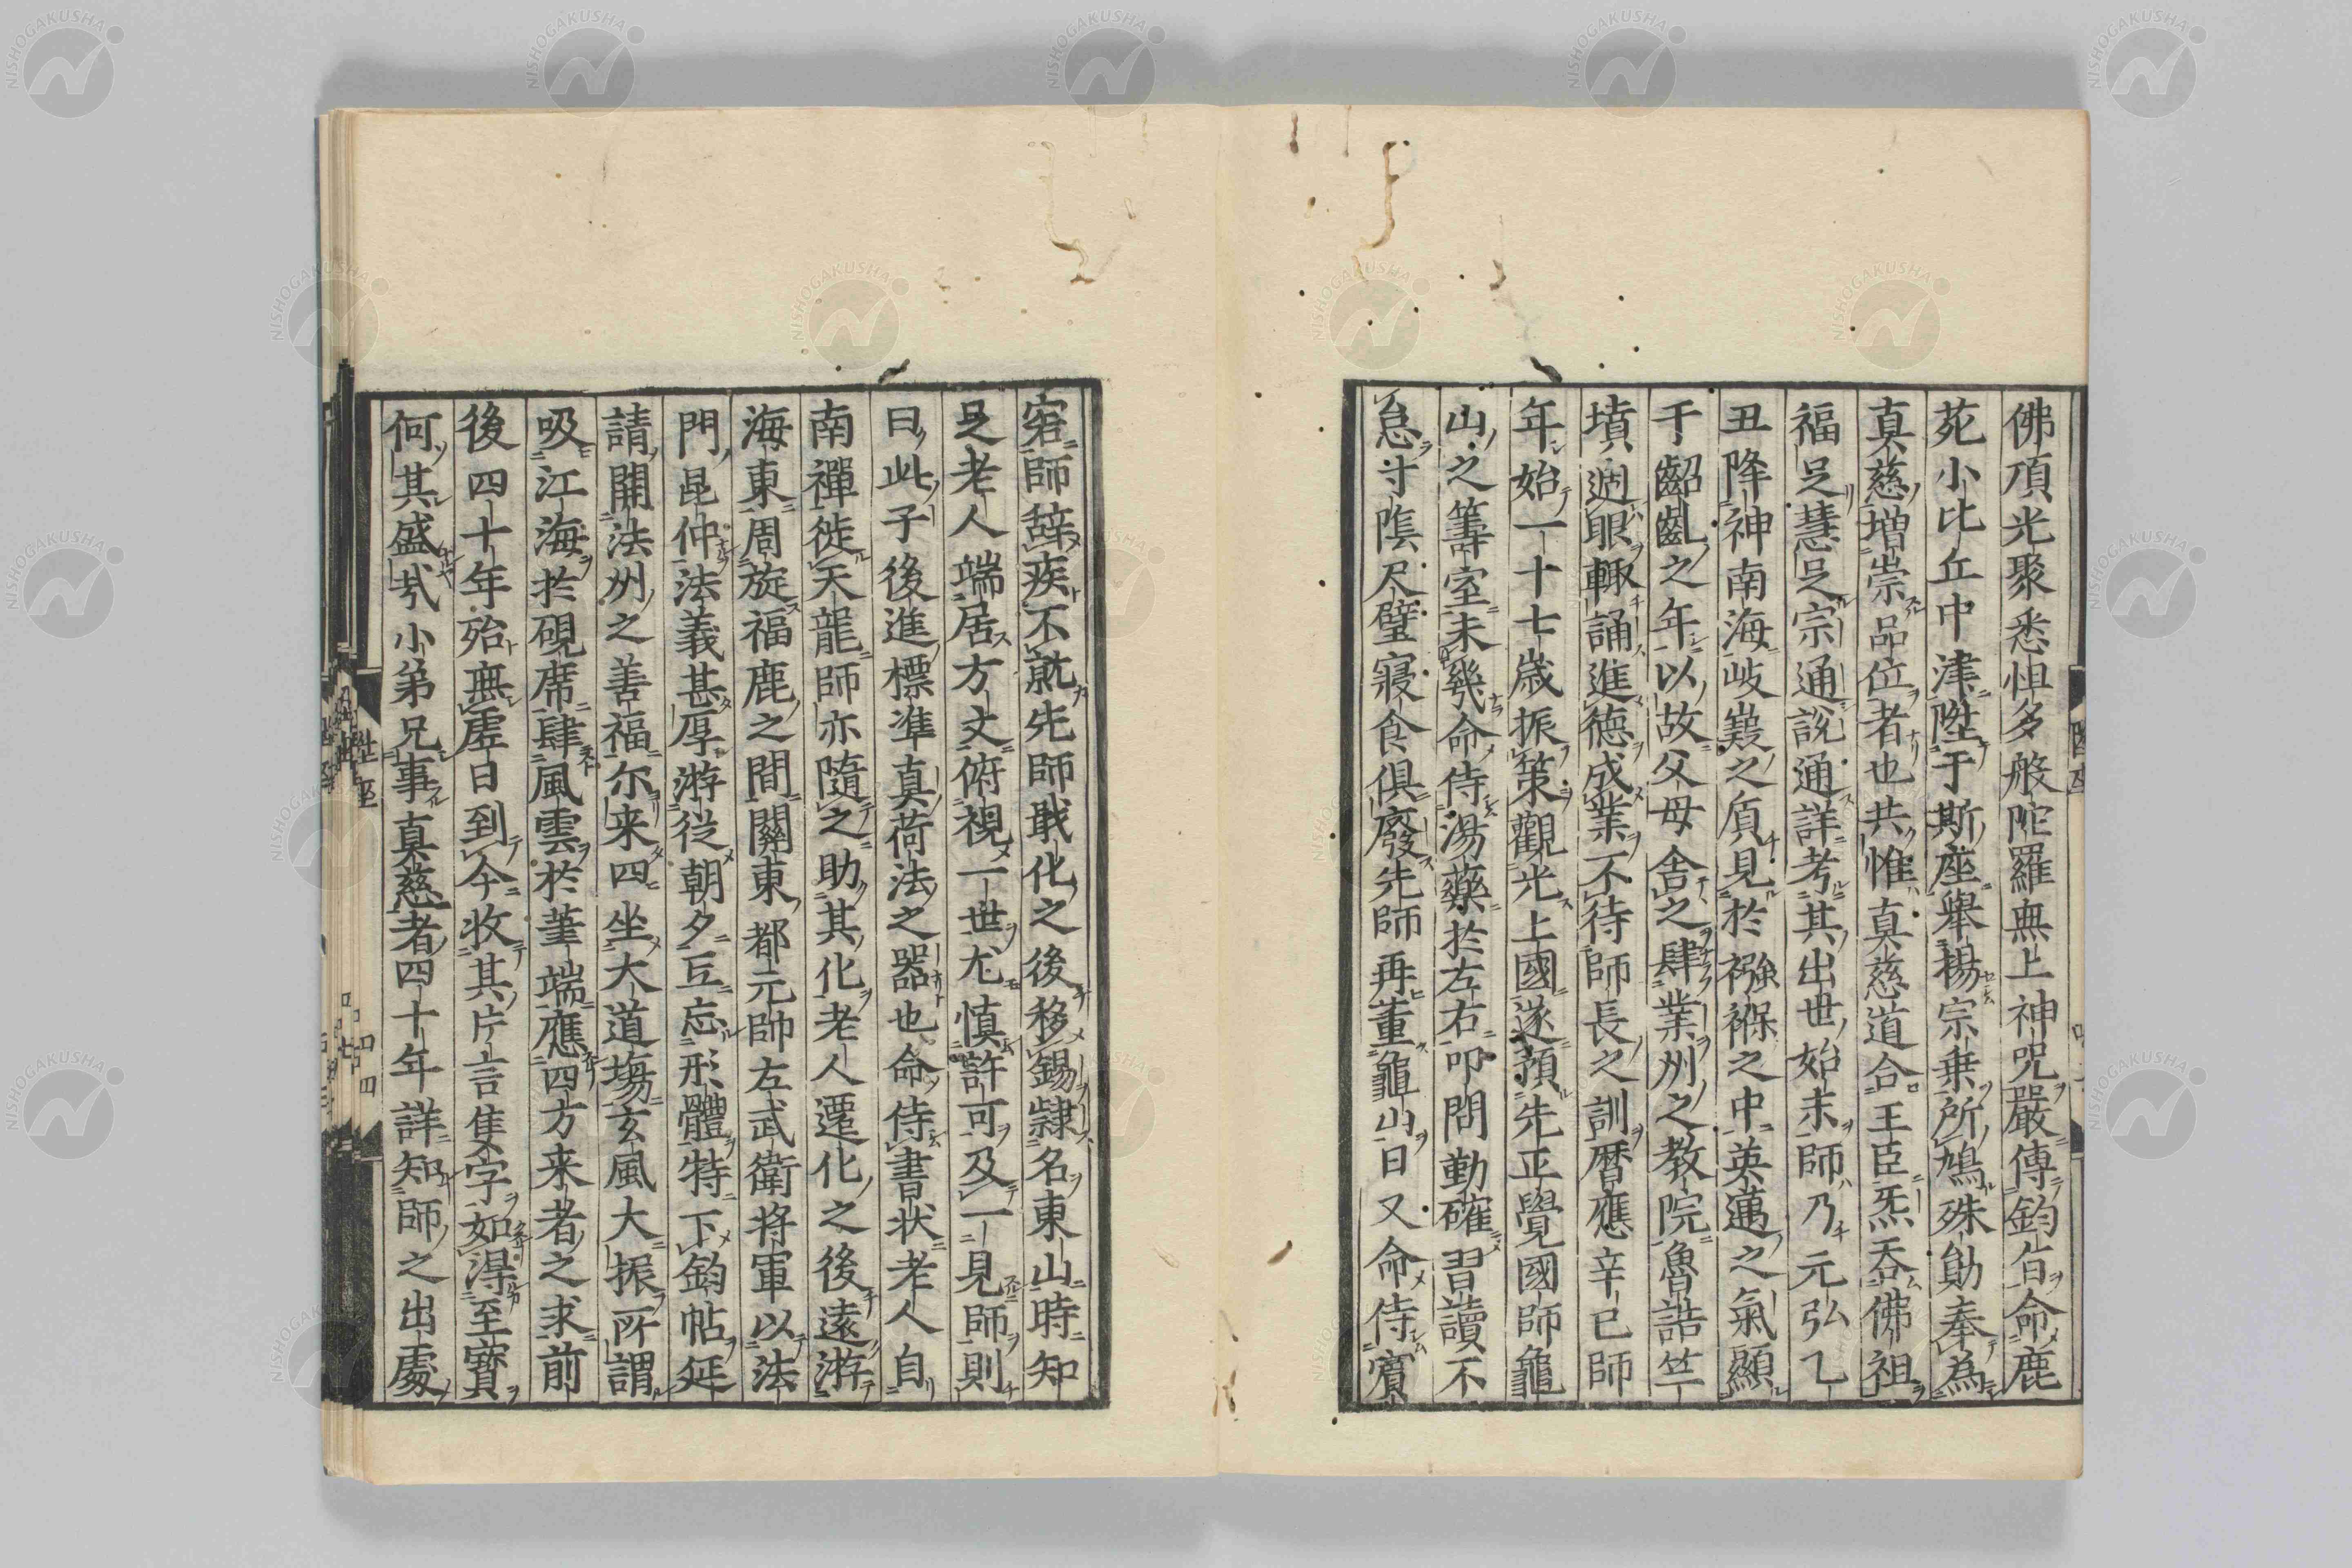 佛頂光聚悉怛多般陀羅無上神咒嚴傳鈞旨命鹿
苑小比丘中津陞于斯座舉揚宗乗所鳩殊勛奉為
真慈増崇品位者也共惟真慈道合王臣炁吞佛祖
福足慧足宗通説通詳考其出世始末師乃元弘乙
丑降神南海岐嶷之質見於襁褓之中英邁之氣顯
于齠齔之年以故父母舎之肆業州之教院魯誥竺
墳過眼輙誦進德成業不待師長之訓暦應辛已師
年始一十七歳振策觀光上國遂預先正覺國師龜
山之籌室未幾命侍湯藥於左右叩問勤確習讀不
怠寸隂尺璧寢食俱廢先師再董龜山日又命侍賔
窂師辞疾不就先師戢化之後移錫隷名東山時知
足老人端居方丈俯視一世尤慎許可及一見師則
曰此子後進標準真荷法之器也命侍書状老人自
南禪徙天龍師亦隨之助其化老人遷化之後遠游
海東周旋福鹿之間關東都元帥左武衛将軍以法
門昆仲法義甚厚游従朝夕互忘形體特下鈞帖延
請開法州之善福尓来四坐大道塲玄風大振所謂
吸江海於硯席肆風雲於筆端應四方来者之求前
後四十年殆無虚日到今收其片言隻字如得至寳
何其盛㢤小弟兄事真慈者四十年詳知師之出處